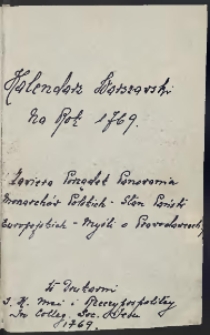 Kalendarz Warszawski
Na Rok 1769.
Zawiera Porządek Panowania
Monarchów Polskich - Stan Państw
Europejskich - Myśli o Prawodawcach,
w Drukarni
J. K. Mci i Rzeczypospolitey
In Colleg. Soc. Jesu
1769.